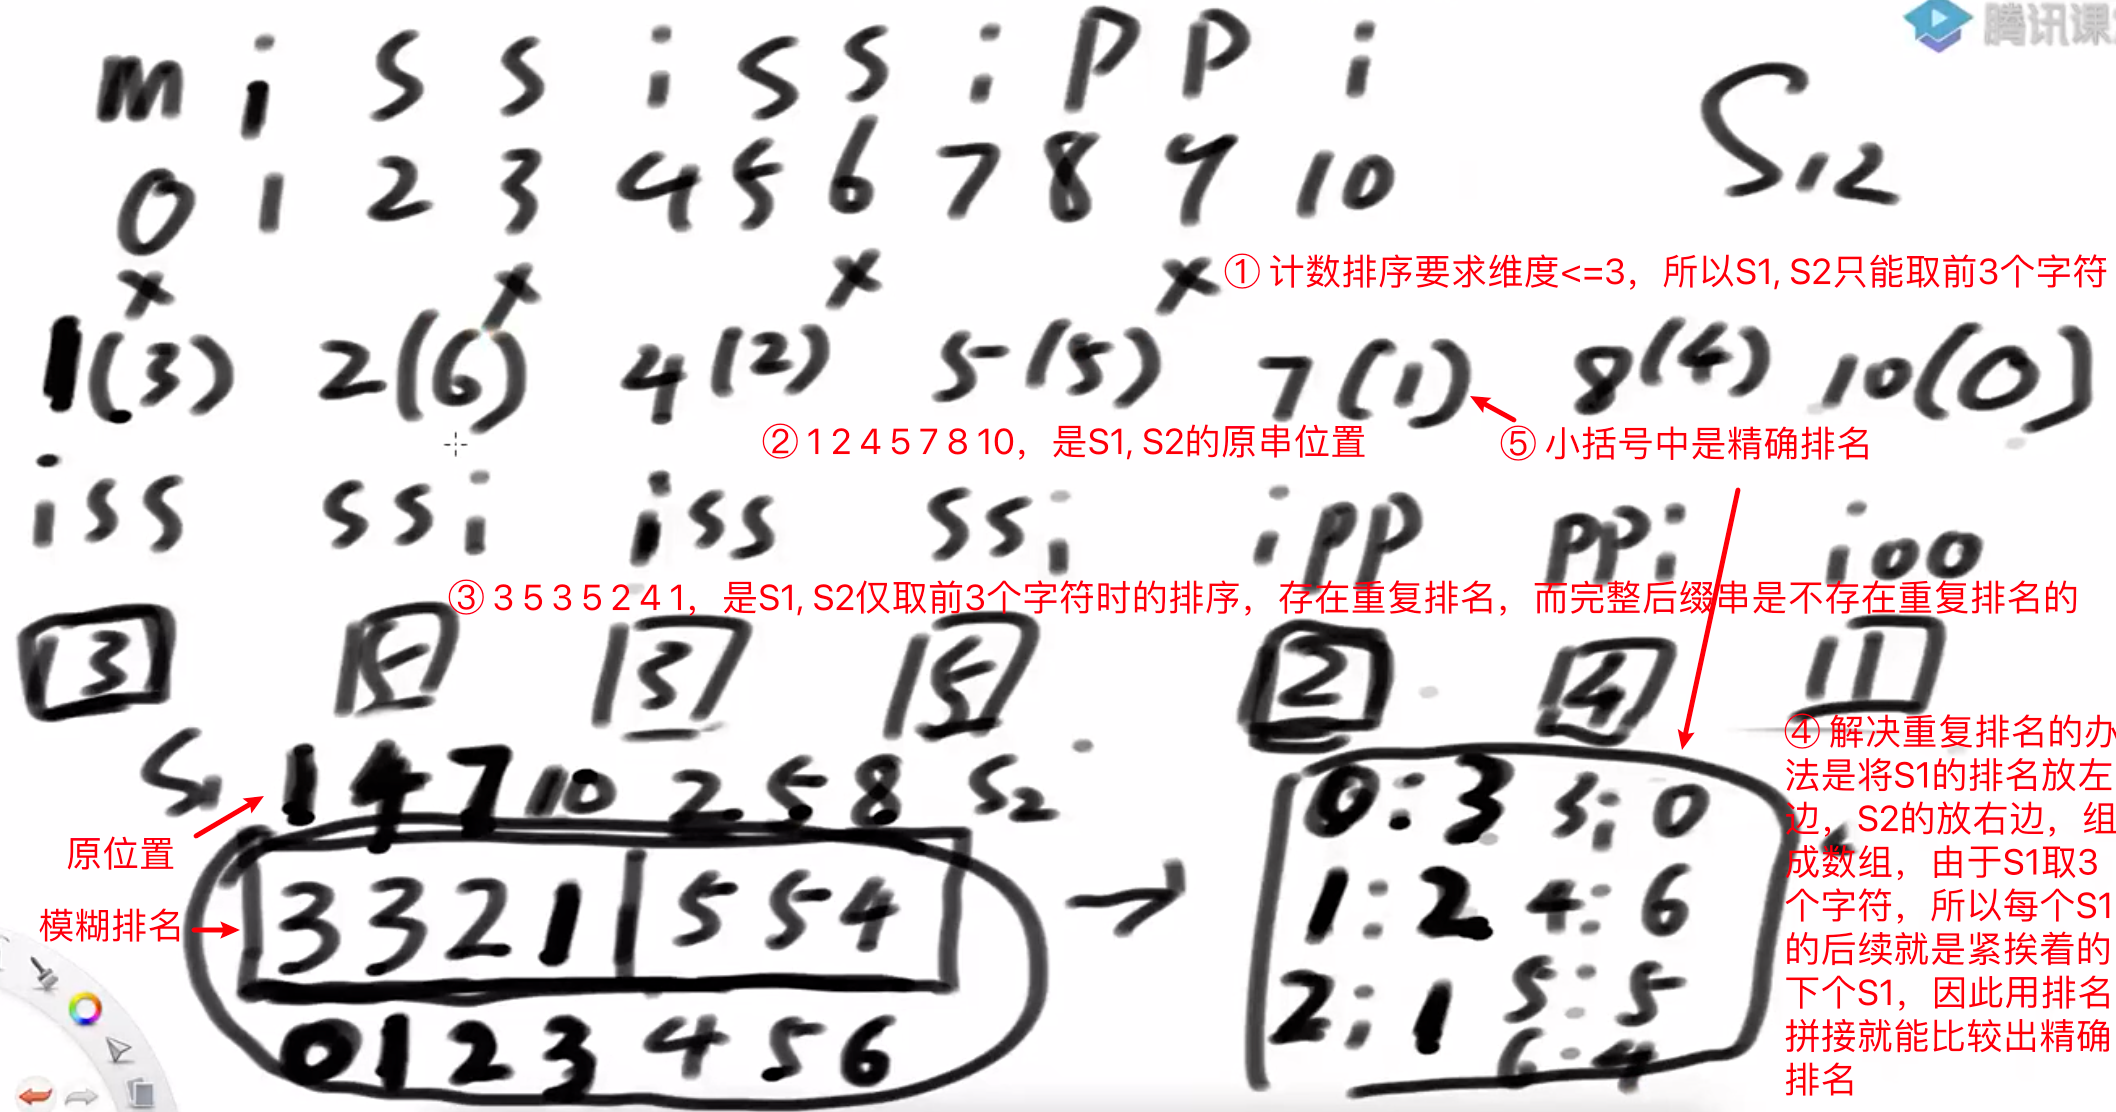 腾讯课
m i s s i s s i p p i
0 1 2 3 4 5 6 7 8 9 10
S12
x x x x
① 计数排序要求维度<=3，所以S1, S2只能取前3个字符
1(3) 2(6) 4(2) 5(5) 7(1) 8(4) 10(0)
② 1 2 4 5 7 8 10，是S1, S2的原串位置
⑤ 小括号中是精确排名
iss ssi iss ssi ipp ppi i00
③ 3 5 3 5 2 4 1，是S1, S2仅取前3个字符时的排序，存在重复排名，而完整后缀串是不存在重复排名的
3 5 3 5 2 4 1
S1 1 4 7 10 2 5 8 S2
原位置
模糊排名
3 3 2 1 5 5 4
0 1 2 3 4 5 6
→
0:3 3:0
1:2 4:6
2:1 5:5
6:4
④ 解决重复排名的办
法是将S1的排名放左
边，S2的放右边，组
成数组，由于S1取3
个字符，所以每个S1
的后续就是紧挨着的
下个S1，因此用排名
拼接就能比较出精确
排名